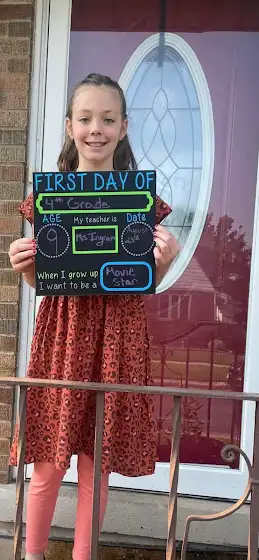 FIRST DAY OF
4th Grade
AGE My teacher is Date
9 Ms Ingram August
When I grow up
I want to be a
Movie
Star